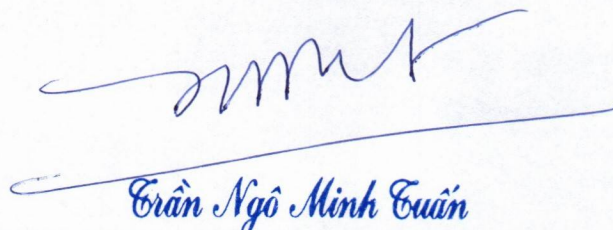 Trần Ngô Minh Tuấn